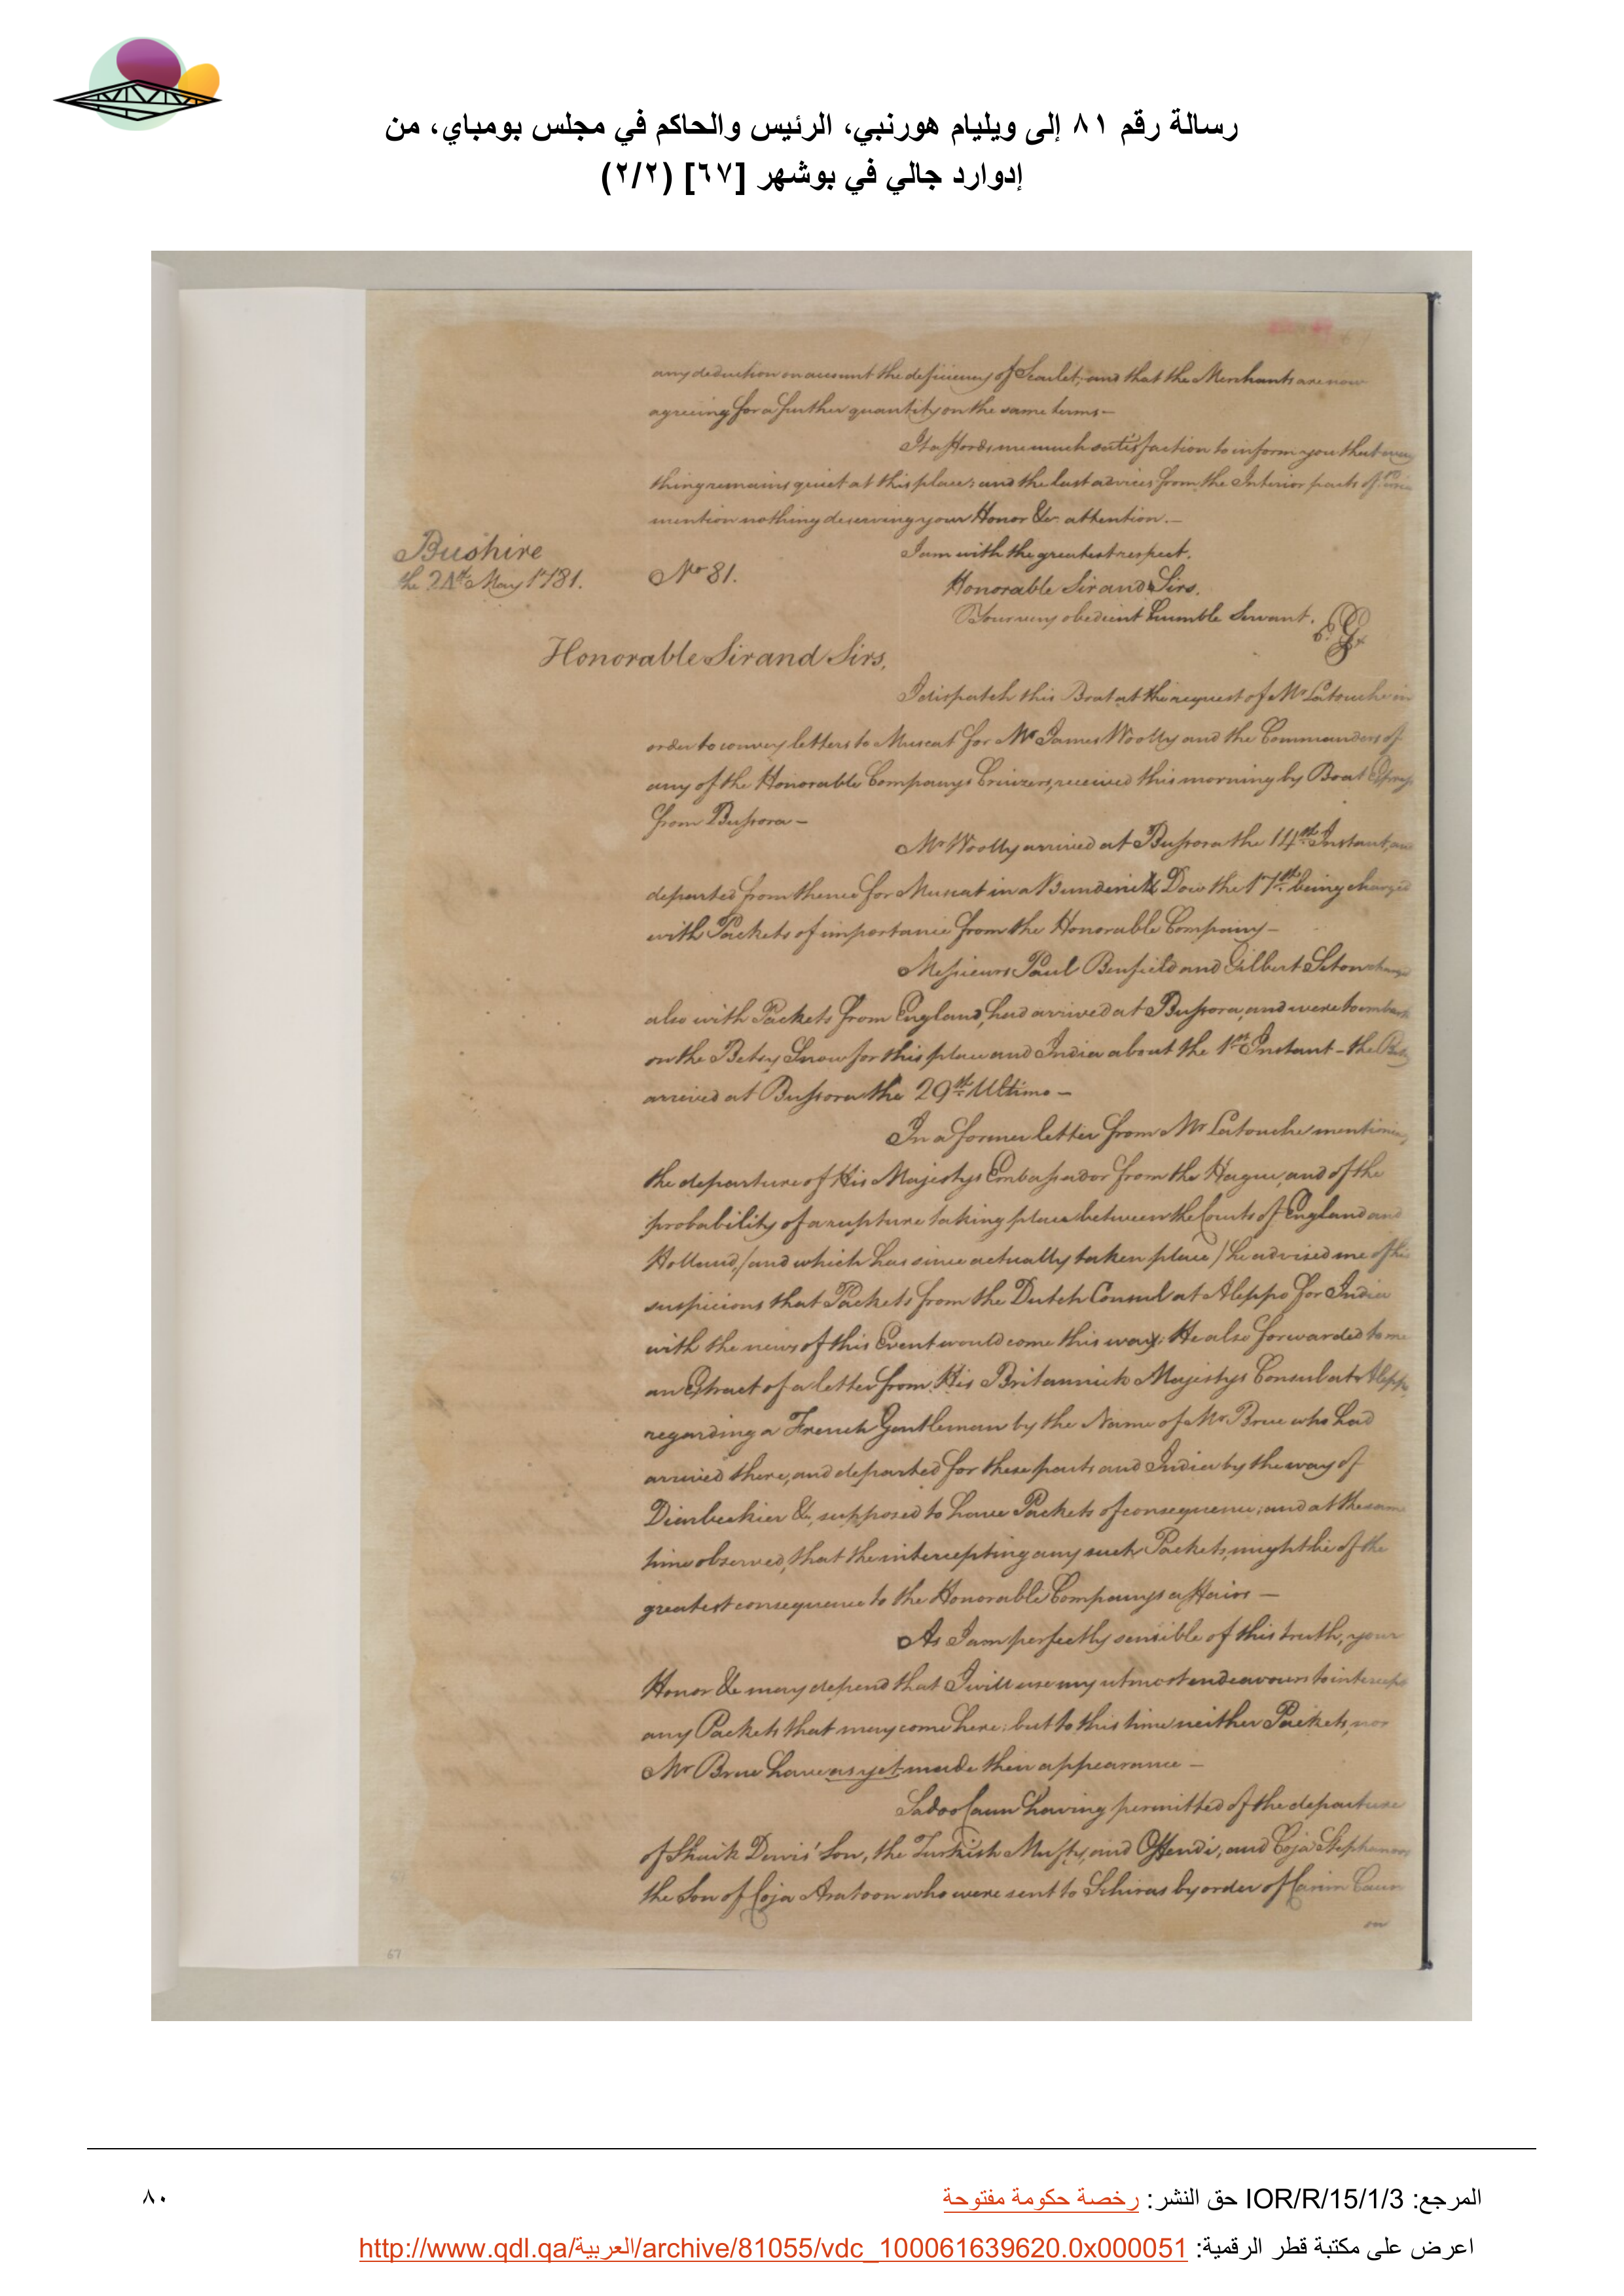 رسالة رقم ٨١ إلى ويليام هورنبي، الرئيس والحاكم في مجلس بومباي، من
إدوارد جالي في بوشهر [٦٧] (٢/٢)
any deduction on account the deficiency of Scarlet, and that the Merchants are now
agreeing for a further quantity on the same terms —
It affords me much satisfaction to inform you that every
thing remains quiet at this place, and the last advices from the Interior parts of
mention nothing deserving your Honor &c. attention. —
I am with the greatest respect.
Honorable Sir and Sirs.
Your very obedient humble Servant. E. G.
Bushire
the 24th May 1781.
No 81.
Honorable Sir and Sirs,
I dispatch this Boat at the request of Mr Latouche in
order to convey letters to Muscat for Mr James Woolly and the Commanders of
any of the Honorable Companys Cruizers, received this morning by Boat Express
from Bussora —
Mr Woolly arrived at Bussora the 14th Instant, and
departed from thence for Muscat in a Bunderick Dow the 17th being charged
with Packets of importance from the Honorable Company —
Messieurs Paul Benfield and Gilbert Seton charged
also with Packets from England, had arrived at Bussora, and were to embark
on the Betsy Snow for this place and India about the 1st Instant - the Betsy
arrived at Bussora the 29th Ultimo —
In a former letter from Mr Latouche mentioning
the departure of His Majestys Embassador from the Hague, and of the
probability of a rupture taking place between the Courts of England and
Holland, /and which has since actually taken place/ he advised me of his
suspicions that Packets from the Dutch Consul at Aleppo for India
with the news of this Event would come this way; He also forwarded to me
an Extract of a letter from His Britannick Majestys Consul at Aleppo
regarding a French Gentleman by the Name of Mr Brue who had
arrived there, and departed for these parts and India by the way of
Diarbeckier &c, supposed to have Packets of consequence; and at the same
time observed, that the intercepting any such Packets, might be of the
greatest consequence to the Honorable Companys affairs —
As I am perfectly sensible of this truth, your
Honor &c may depend that I will use my utmost endeavours to intercept
any Packets that may come here; but to this time neither Packets, nor
Mr Brue have as yet made their appearance —
Sadoo Caun having permitted of the departure
of Shaik Dervis' Son, the Turkish Mufty, and Offendi, and Coja Stephanoos
the Son of Coja Aratoon who were sent to Schiras by order of Carim Caun
on
67
المرجع: IOR/R/15/1/3 حق النشر: رخصة حكومة مفتوحة
٨٠
اعرض على مكتبة قطر الرقمية: http://www.qdl.qa/العربية/archive/81055/vdc_100061639620.0x000051